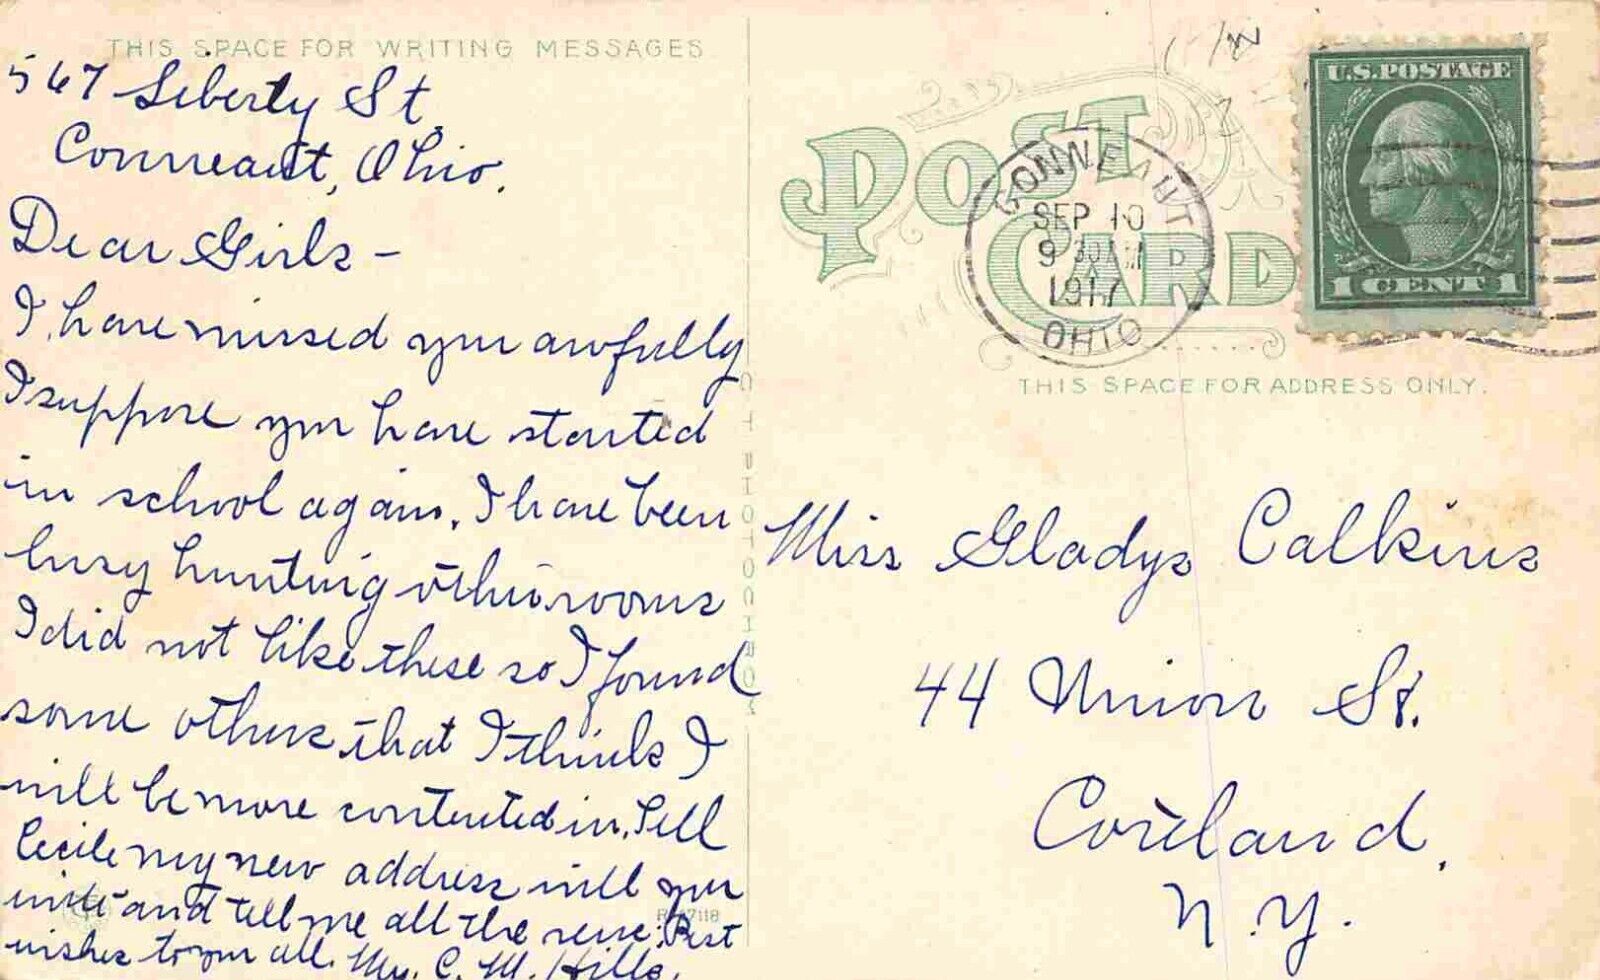 THIS SPACE FOR WRITING MESSAGES
567 Liberty St
Conneaut, Ohio.
Dear Girls -
I have missed you awfully
I suppose you have started
in school again. I have been
busy hunting other rooms
I did not like these so I found
some others that I think I
will be more contented in. Tell
Cecile my new address will you
write and tell me all the news. Best
wishes to you all. Mrs. C. M. Hills.
C T PHOTOCHROM
R-47118
POST CARD
CONNEAUT
SEP 10
9 30 AM
1917
OHIO
U.S. POSTAGE
1 CENT 1
THIS SPACE FOR ADDRESS ONLY.
Miss Gladys Calkins
44 Union St.
Cortland,
N.Y.